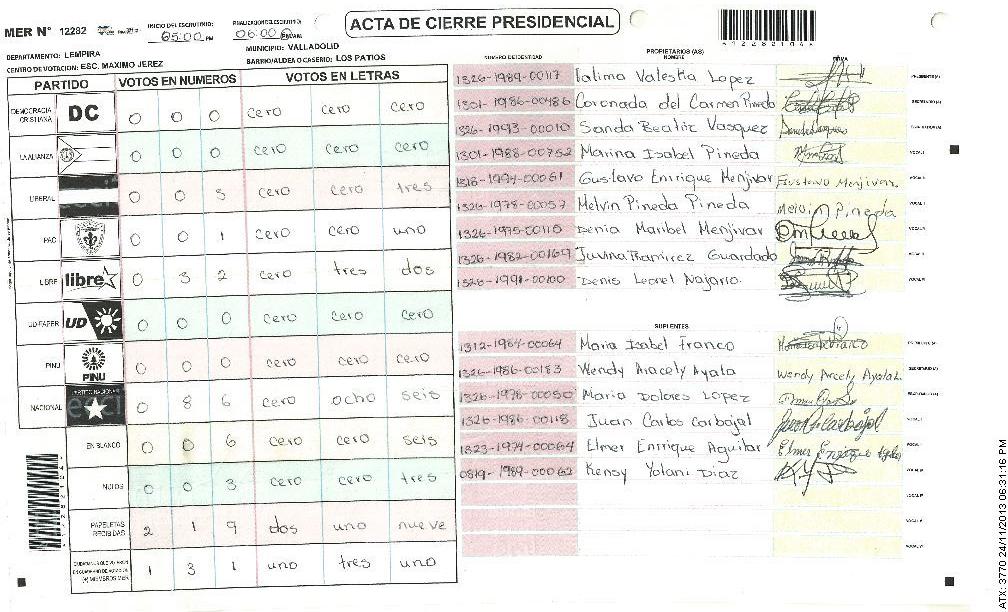 ACTA DE CIERRE PRESIDENCIAL
MER N° 12282
INICIO DEL ESCRUTINIO: 05:00 PM
FINALIZACION DEL ESCRUTINIO: 06:00
DEPARTAMENTO: LEMPIRA
MUNICIPIO: VALLADOLID
CENTRO DE VOTACION: ESC. MAXIMO JEREZ
BARRIO/ALDEA O CASERIO: LOS PATIOS
PARTIDO VOTOS EN NUMEROS VOTOS EN LETRAS
DEMOCRACIA CRISTIANA DC 0 0 0 cero cero cero
LA ALIANZA 0 0 0 cero cero cero
LIBERAL 0 0 3 cero cero tres
PAC 0 0 1 cero cero uno
LIBRE libre 0 3 2 cero tres dos
UD-FAPER UD 0 0 0 cero cero cero
PINU PINU 0 0 0 cero cero cero
NACIONAL PARTIDO NACIONAL 0 8 6 cero ocho seis
EN BLANCO 0 0 6 cero cero seis
NULOS 0 0 3 cero cero tres
PAPELETAS RECIBIDAS 2 1 9 dos uno nueve
1 3 1 uno tres uno
NUMERO DE IDENTIDAD PROPIETARIOS (AS) NOMBRE FIRMA
1326-1989-00117 Fatima Valestia Lopez PRESIDENTE (A)
1301-1986-00486 Coronada del Carmen Pineda SECRETARIO (A)
1326-1993-00010 Sanda Beatriz Vasquez ESCRUTADOR (A)
1301-1988-00752 Marina Isabel Pineda VOCAL I
1318-1994-00061 Gustavo Enrique Menjivar Gustavo Menjivar
1326-1978-00057 Melvin Pineda Pineda Melvin Pineda
1326-1975-00115 Denia Maribel Menjivar
1326-1982-00169 Juvina Ramirez Guardado
1326-1991-00100 Denis Leonel Najario
SUPLENTES
1312-1984-00064 Maria Isabel Franco PRESIDENTE (A)
1326-1986-00183 Wendy Aracely Ayala Wendy Arcely Ayala SECRETARIO (A)
1326-1978-00050 Maria Dolores Lopez ESCRUTADOR (A)
1326-1986-00118 Juan Carlos Carbajal Juan C Carbajal
1323-1974-00064 Elmer Enrique Aguilar Elmer Enrique
0819-1989-00062 Kensy Yolani Diaz
ATX: 3770 24/11/2013 06:31:16 PM